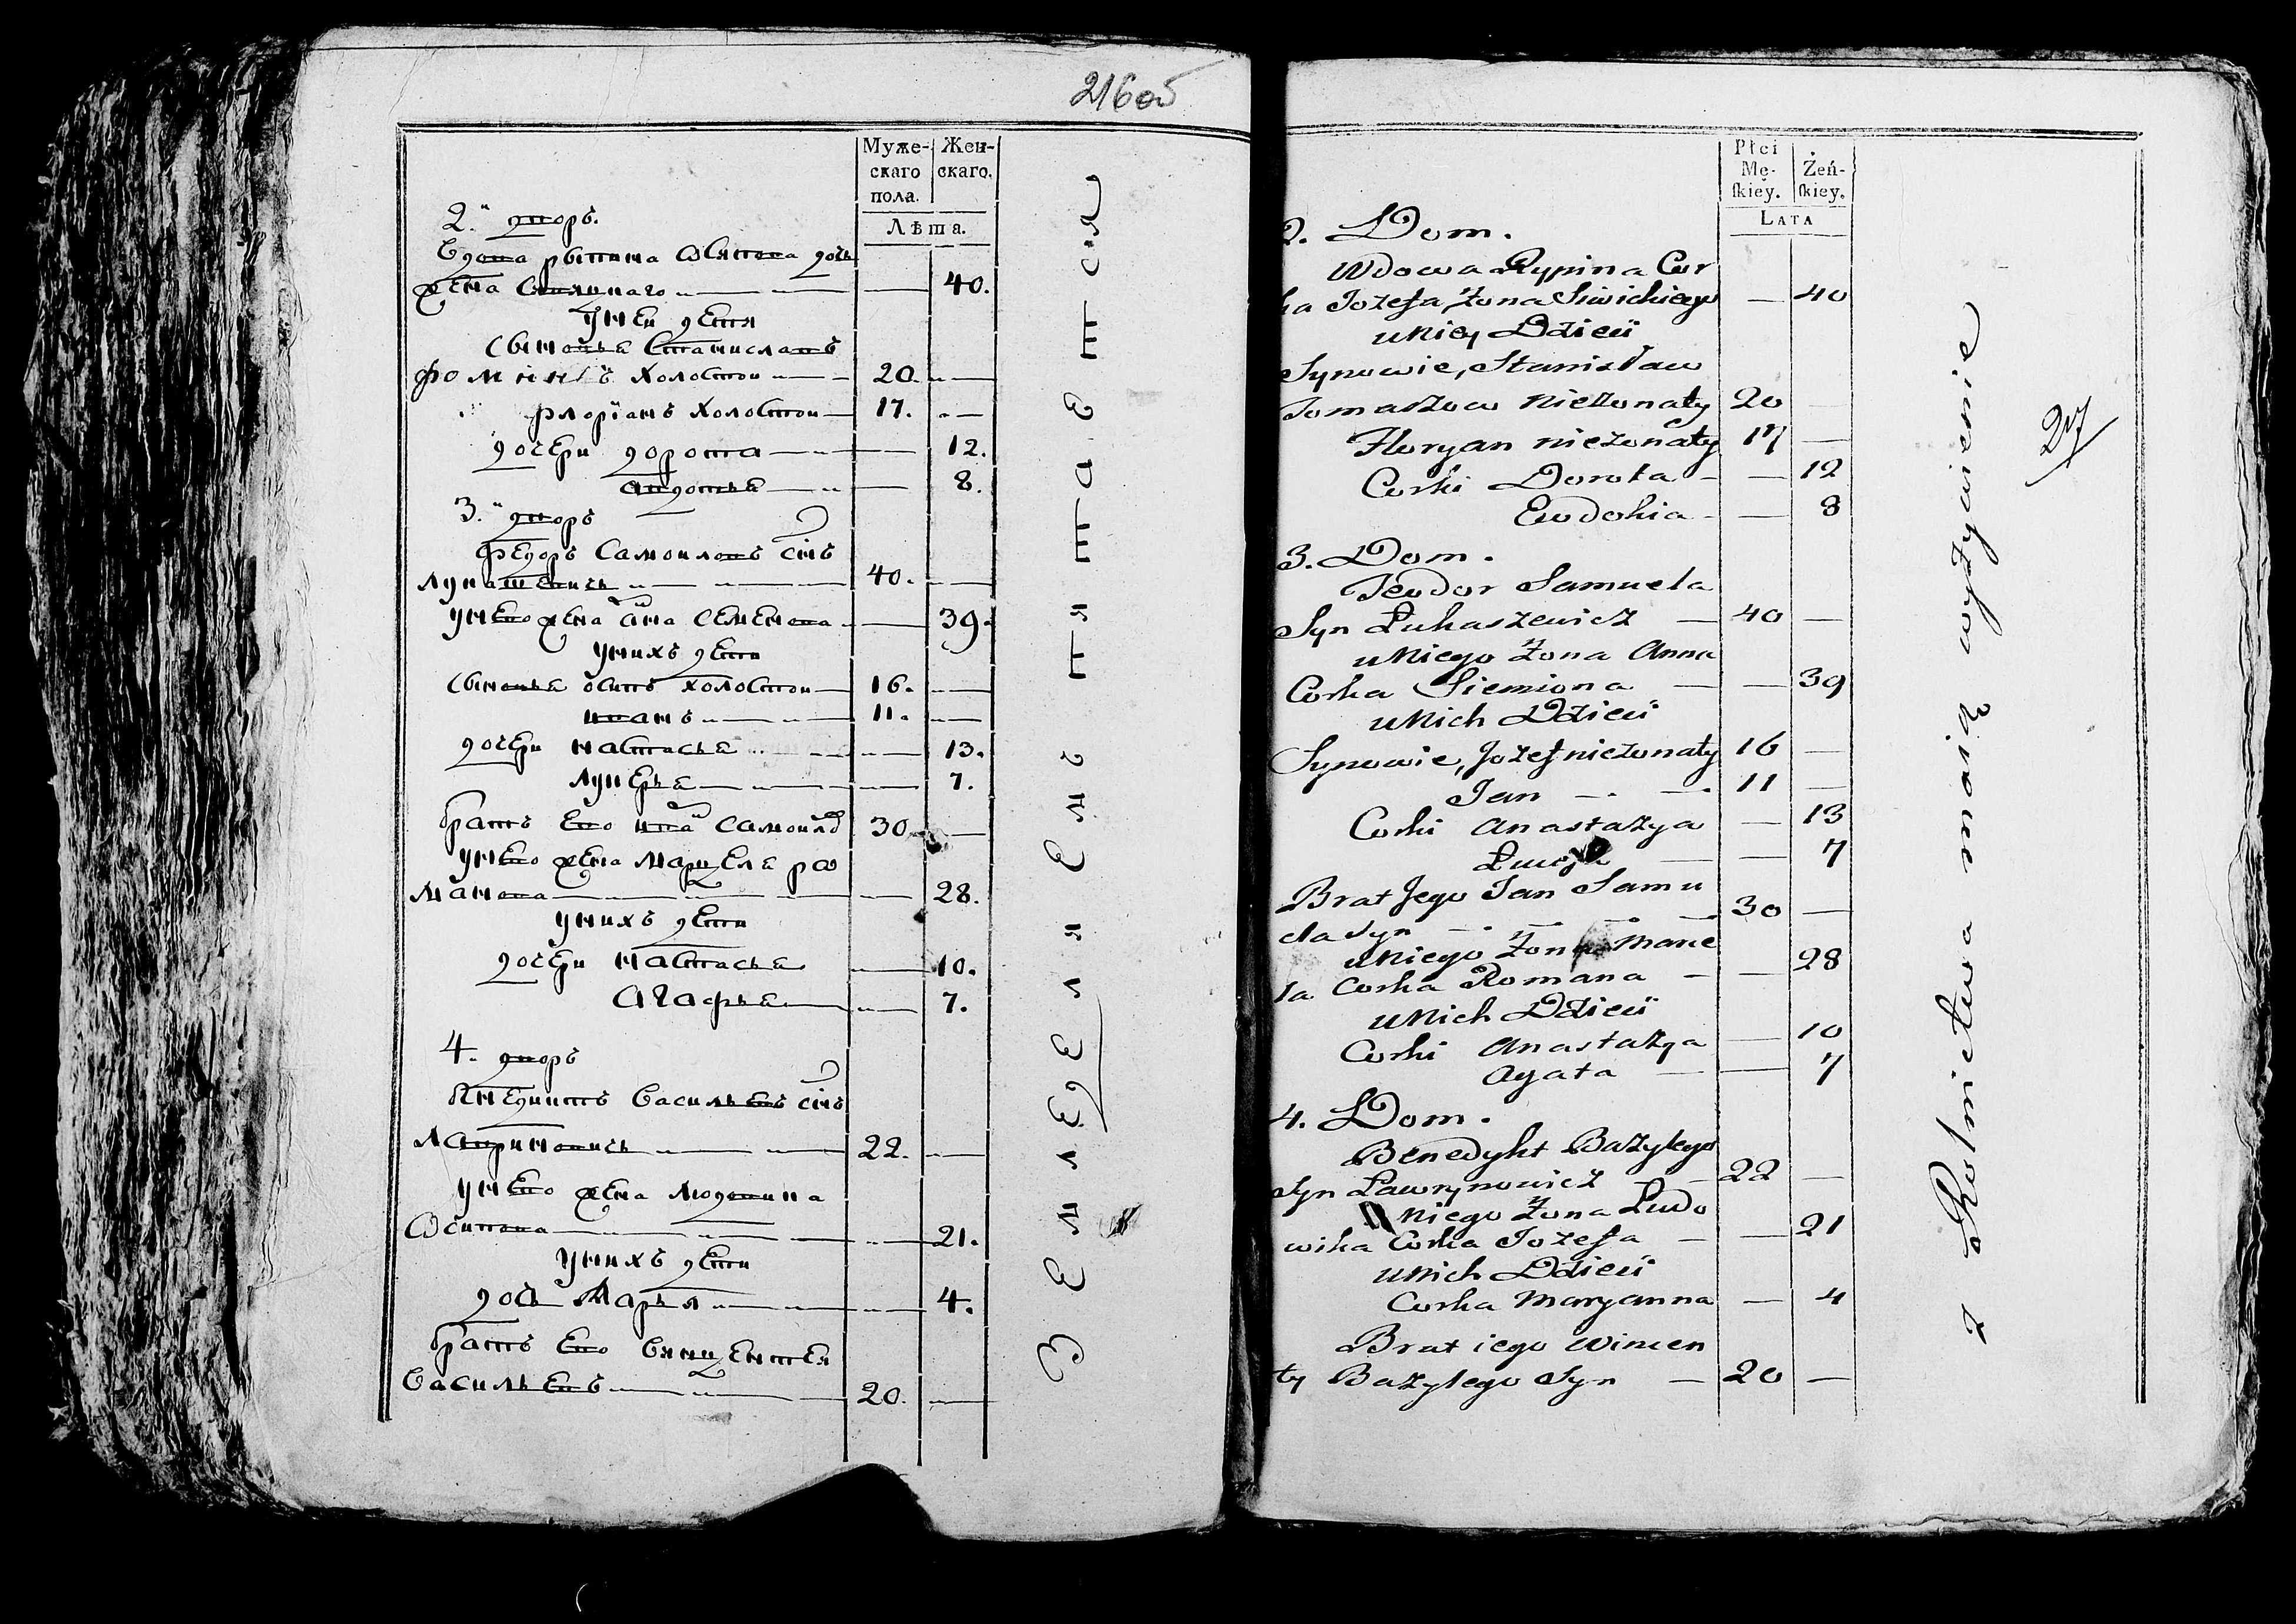 216об
Муже-
скаго
пола.
Жен-
скаго.
Лѣта.
2.й дворъ.
Вдова рыпина Осипова дочь
жена 40.
у неи дети
сыновья Станиславъ
Фоминъ холостои 20.
флорїанъ холостои 17.
дочери дорота 12.
авдотья 8.
3.й дворъ
Федоръ Самоиловъ снъ
лукашевичь 40.
у нево жена анна семенова 39.
у нихъ дети
сыновья осипъ холостои 16.
иванъ 11.
дочери настасья 13.
лукерья 7.
братъ ево иванъ самоиловъ 30
у нево жена марцеля ро
манова 28.
у нихъ дети
дочери настасья 10.
агафья 7.
4. дворъ
бенедиктъ васильевъ снъ
лавриновичь 22.
у нево жена людовика
Осипова 21.
у нихъ дети
дочь Марья 4.
братъ ево винцентеи
васильевъ 20.
Земледелиемъ питается
Płci
Mę-
ſkiey.
Żeń-
ſkiey.
LATA
2. Dom.
Wdowa Rypina Cor
ka Jozefa Żona Siwickiego — 40
u Niey Dzieci
Synowie, Stanisław
Tomaszow nieżonaty 20 —
Floryan nieżonaty 17 —
Corki Dorota — 12
Ewdokia — 8
3. Dom.
Teodor Samuela
Syn Łukaszewicz 40 —
u Niego Żona Anna
Corka Siemiona — 39
u Nich Dzieci
Synowie, Jozef nieżonaty 16 —
Jan 11 —
Corki Anastazya — 13
— 7
Brat Jego Jan Samu
ela Syn 30 —
u Niego Żona Marce
la Corka Romana — 28
u Nich Dzieci
Corki Anastazya — 10
Agata — 7
4. Dom.
Benedykt Bazylego
Syn Ławrynowicz 22 —
Niego Żona Ludo
wika Corka Jozefa — 21
u Nich Dzieci
Corka Maryanna — 4
Brat iego Wincen
ty Bazylego Syn 20 —
z Rolnictwa maią wyżywienie
27